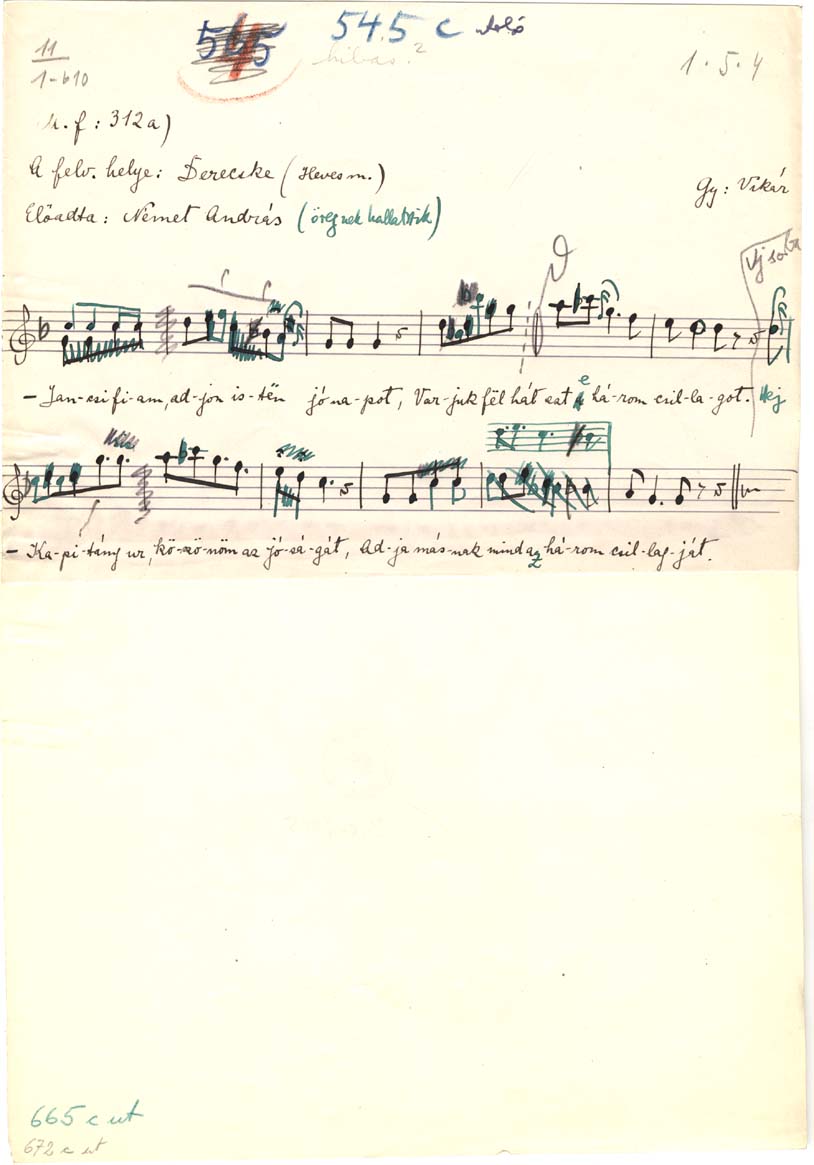 11
1-610
545
545 c
hibás?
1 · 5 · 4
M. f : 312 a)
A felv. helye: Derecske (Heves m.)
Gy: Vikár
Előadta : Német András (öregnek hallatszik)
Uj sorba
– Jan-csi fi-am, ad-jon is-tën jó na-pot, Var-juk fël hát ezt e há-rom csil-la-got. Hej
– Ka-pi-tány ur, kö-szö-nöm az jó-sá-gát, Ad-ja más-nak mind az há-rom csil-lag-ját.
665 c ut
672 c ut